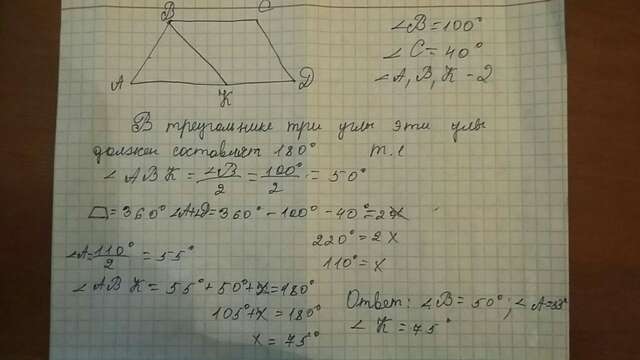 B C
∠B = 100°
∠C = 40°
A K D
∠A, B, K - ?
В треугольнике три углы эти улы
должен составлят 180° т.е
∠ABK = ∠B/2 = 100°/2 = 50°
= 360° ∠A+D = 360° - 100° - 40° = 2x
220° = 2x
∠A = 110°/2 = 55°
110° = x
∠ABK = 55° + 50° + x = 180°
105° + x = 180°
x = 75°
Ответ: ∠B = 50°; ∠A = 55°
∠K = 75°